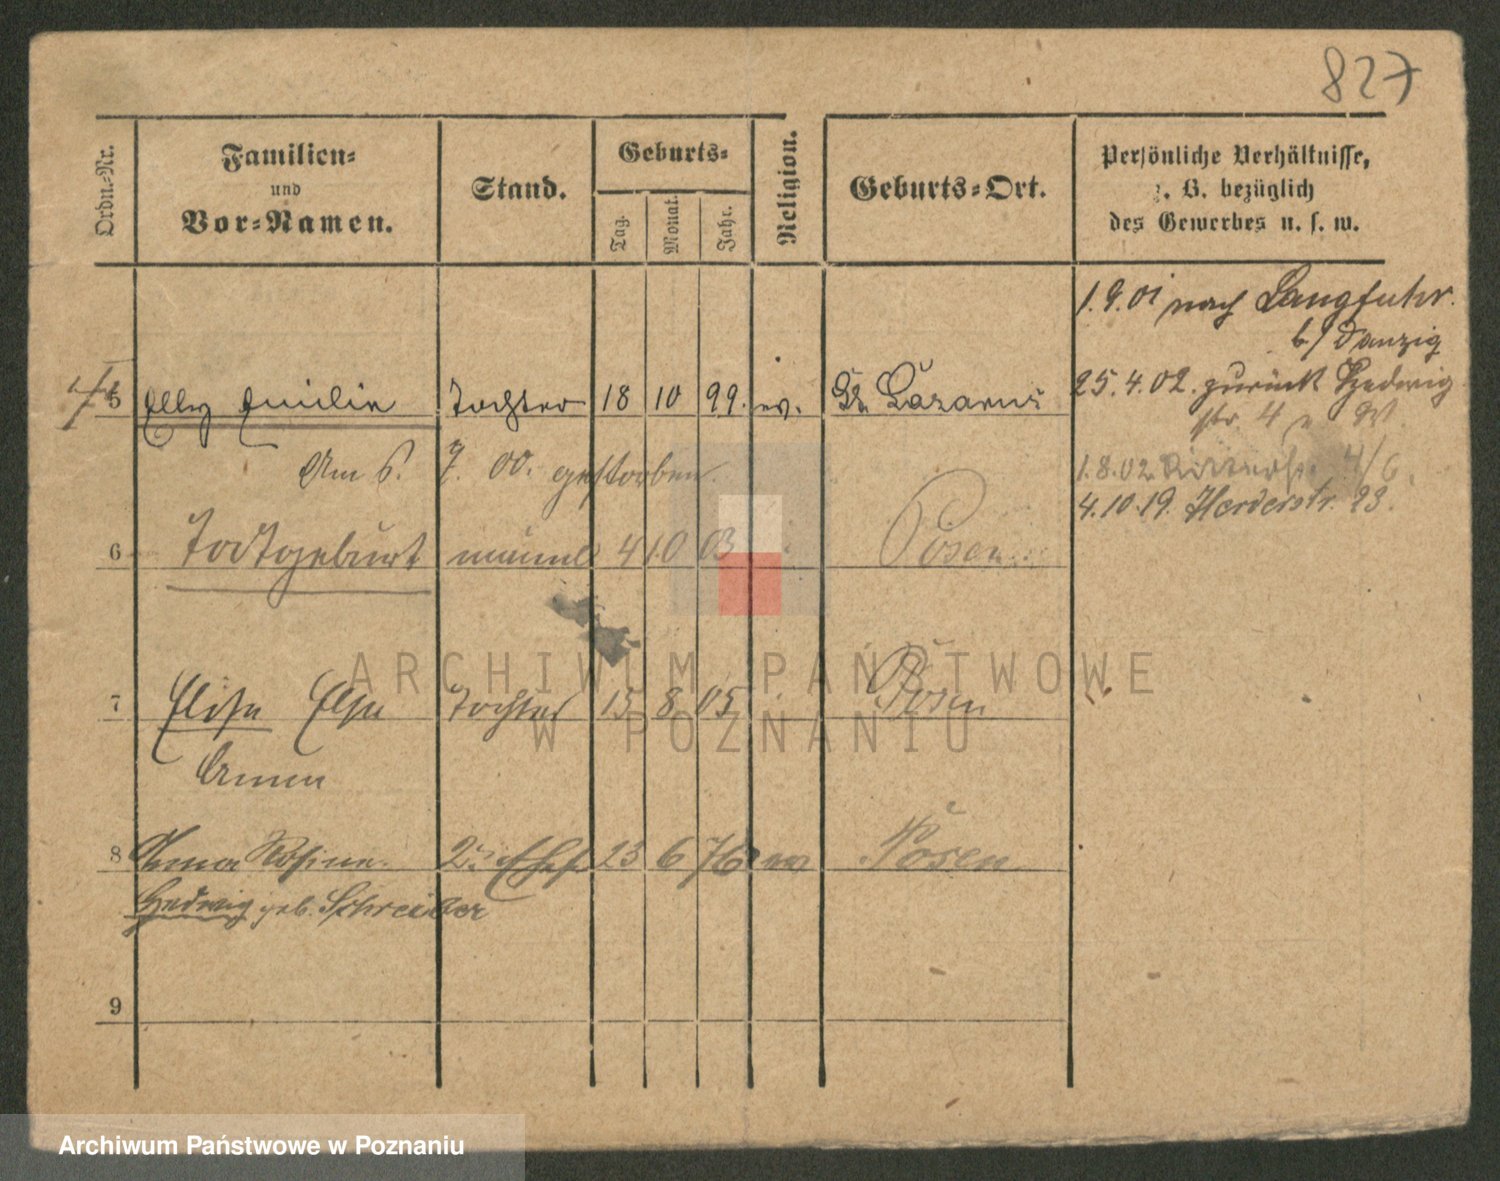 827
Ordn.-Nr.
Familien-
und
Vor-Namen.
Stand.
Geburts-
Tag.
Monat.
Jahr.
Religion.
Geburts-Ort.
Persönliche Verhältnisse,
z. B. bezüglich
des Gewerbes u. s. w.
1.9.01 nach Langfuhr.
b/ Danzig
5 Elly Emilie Tochter 18 10 99. ev. St. Lazarus
25.4.02. zurück Hedwig
str. 4
Am 6. 7. 00. gestorben.
1.8.02 4/6.
4.10.19. Herderstr. 23.
6 Todtgeburt männl 4 10 03 Posen
ARCHIWUM PAŃSTWOWE
W POZNANIU
7 Elise Else Tochter 15 8 05 Posen
Anna
8 Anna Rosine 2te Ehefr 23 6 76 ev Posen
Hedwig geb. Schreiber
9
Archiwum Państwowe w Poznaniu